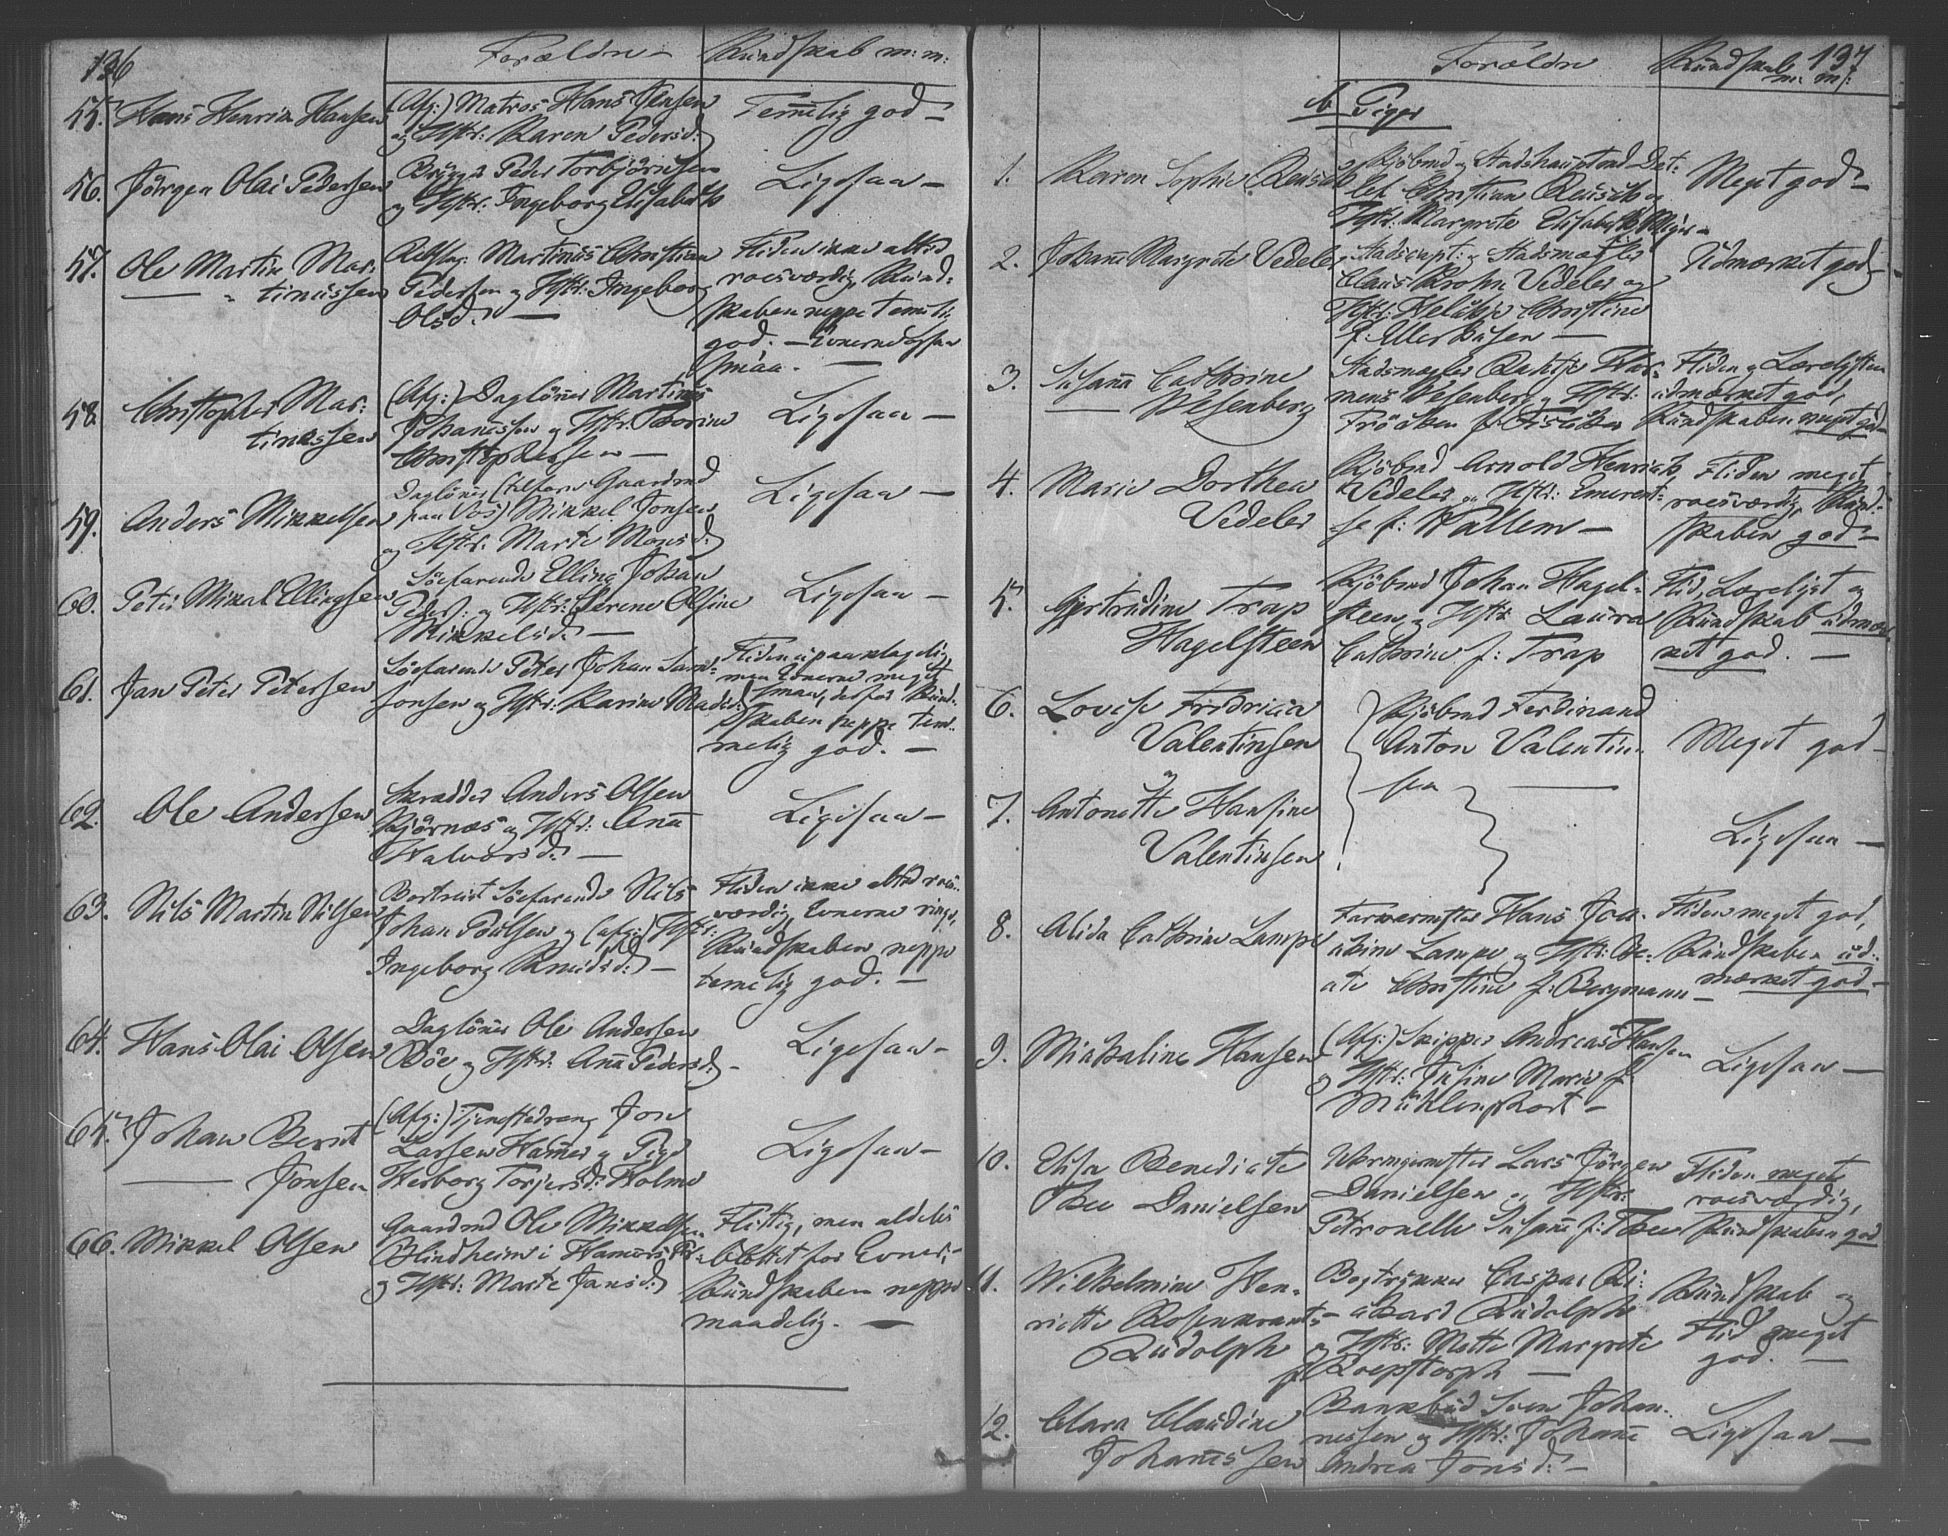 136
Forældre Kundskab m: m:
55. Hans Henrik Hansen
(Afg:) Matros Hans Jensen
og Hstr: Karen Pedersd:
Temelig god —
56. Jörgen Olai Pedersen
Peder Torbjörnsen
og Hstr: Ingeborg Elisabeth
Ligesaa —
57. Ole Martin Mar-
tinussen
Martinus Christian
Pedersen og Hstr: Ingeborg
Olsd: —
Fliden ikke altid
roesværdig, Kund-
skaben neppe temelig
god. — Evnerne ogsaa
smaa. —
58. Christopher Mar-
tinussen
(Afg:) Daglöner Martinus
Johannessen og Hstr: Thorine
Christophersen —
Ligesaa —
59. Anders Mikkelsen
Daglöner (tilforn Gaardmd
paa Vos) Mikkel Jonsen
og Hstr: Marte Monsd:
Ligesaa —
60. Peter Mikal Ellingsen
Söefarende Elling Johan
Peders: og Hstr: Serene Olsine
Mikkelsd: —
Ligesaa —
61. Jan Peter Petersen
Söefarende Peter Johan Sam-
sonsen og Hstr: Karine Madsd:
Fliden upaaklagelig,
men Evnerne meget
smaa, derfor Kund-
skaben neppe tem-
melig god. —
62. Ole Andersen
Skrædder Anders Olsen
Björnæs og Hstr: Ana
Halvorsd: —
Ligesaa —
63. Nils Martin Nilsen
Bortreist Söefarende Nils
Johan Poulsen og (afg:) Hstr:
Ingeborg Knudsd: —
Fliden ikke altid roes-
værdig, Evnerne ringe,
Kundskaben neppe
temelig god. —
64. Hans Olai Olsen
Daglöner Ole Andersen
Böe og Hstr: Ana Pedersd: —
Ligesaa —
65. Johan Bernt
Jonsen
(Afg:) Tjenestedreng Jon
Larsen Hamer og Pige
Herborg Torgersd: Holme
Ligesaa —
66. Mikkel Olsen
Gaardmd Ole Mikkelsen
Blindheim i Hamers Pr:
og Hstr: Marte Jansd:
Flittig, men aldeles
blottet for Evner;
Kundskaben neppe
maadelig. —
137
Forældre Kundskab m: m:
b Piger
1. Karen Sophie Reusch
Kjöbmd og Stadshauptmd Dit-
lef Christian Reusch og
Hstr: Margrete Elisabeth Meyer —
Meget god —
2. Johane Margrete Vedeler
Stadscapt: og Stadsmægler
Claus Krohn Vedeler og
Hstr: Christine
f. Ellerhusen —
Udmærket god
3. Susana Cathrine
Wesenberg
Stadsmægler Har-
mens Wesenberg og Hstr:
f: Fischer
Fliden og Lærelysten
udmærket god,
Kundskaben meget god
4. Marie Dorthea
Vedeler
Kjöbmd Arnold Henrich
Vedeler og Hstr: Emerent-
se f: Wallem —
Fliden meget
roesværdig, Kund-
skaben god —
5. Gjertrudine Trap
Hagelsteen
Kjöbmd Johan Hagel-
steen og Hstr Laura
Cathrine f: Trap
Flid, Lærelyst og
Kundskab udmær-
ket god. —
6. Lovise Fredricia
Valentinsen
og
Kjöbmd Ferdinand
Anton Valentin-
sen
Meget god —
7. Antonette Hansine
Valentinsen
Ligesaa —
8. Alida Cathrine Lampe
Farvermster Hans Joa-
chim Lampe og Hstr: Be-
ate Christine f: Bergmann —
Fliden meget god,
Kundskaben ud-
mærket god —
9. Michaline Hansen
(Afg:) Skipper Andreas Hansen
og Hstr: Marie f:
Mühlenphort —
Ligesaa —
10. Elisa Benedicte
Thu Danielsen
Lars Jörgen
Danielsen og Hstr:
Petronelle Susane f: Thue
Fliden meget
roesværdig,
Kundskaben god
11. Wilhelmine Hen-
riette Rosenkrants
Rudolph
Bogtrykker Caspar Ri-
chard Rudolph
og Hstr: Mette Margrete
f: Roepstorph —
Kundskab og
Flid meget
god. —
12. Clara Claudine
Johanessen
Bankbud Sven Johan-
nessen og Hstr: Johane
Andrea Jonsd: —
Ligesaa —